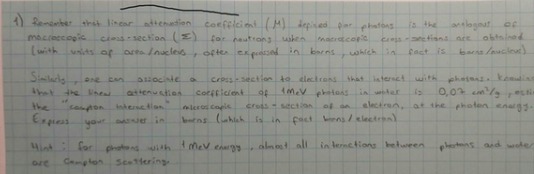 1) Remember that linear attenuation coefficient (μ) defined for photons is the analogous of
macroscopic cross-section (Σ) for neutrons when macroscopic cross-sections are obtained
(with units of area/nucleus, often expressed in barns, which in fact is barns/nucleus)
Similarly, one can associate a cross-section to electrons that interact with photons. Knowing
that the linear attenuation coefficient of 1 MeV photons in water is 0,07 cm²/g,
the "compton interaction" microscopic cross-section of an electron, at the photon energy.
Express your answer in barns (which is in fact barns/electron)
Hint: for photons with 1 MeV energy, almost all interactions between photons and water
are Compton scattering.